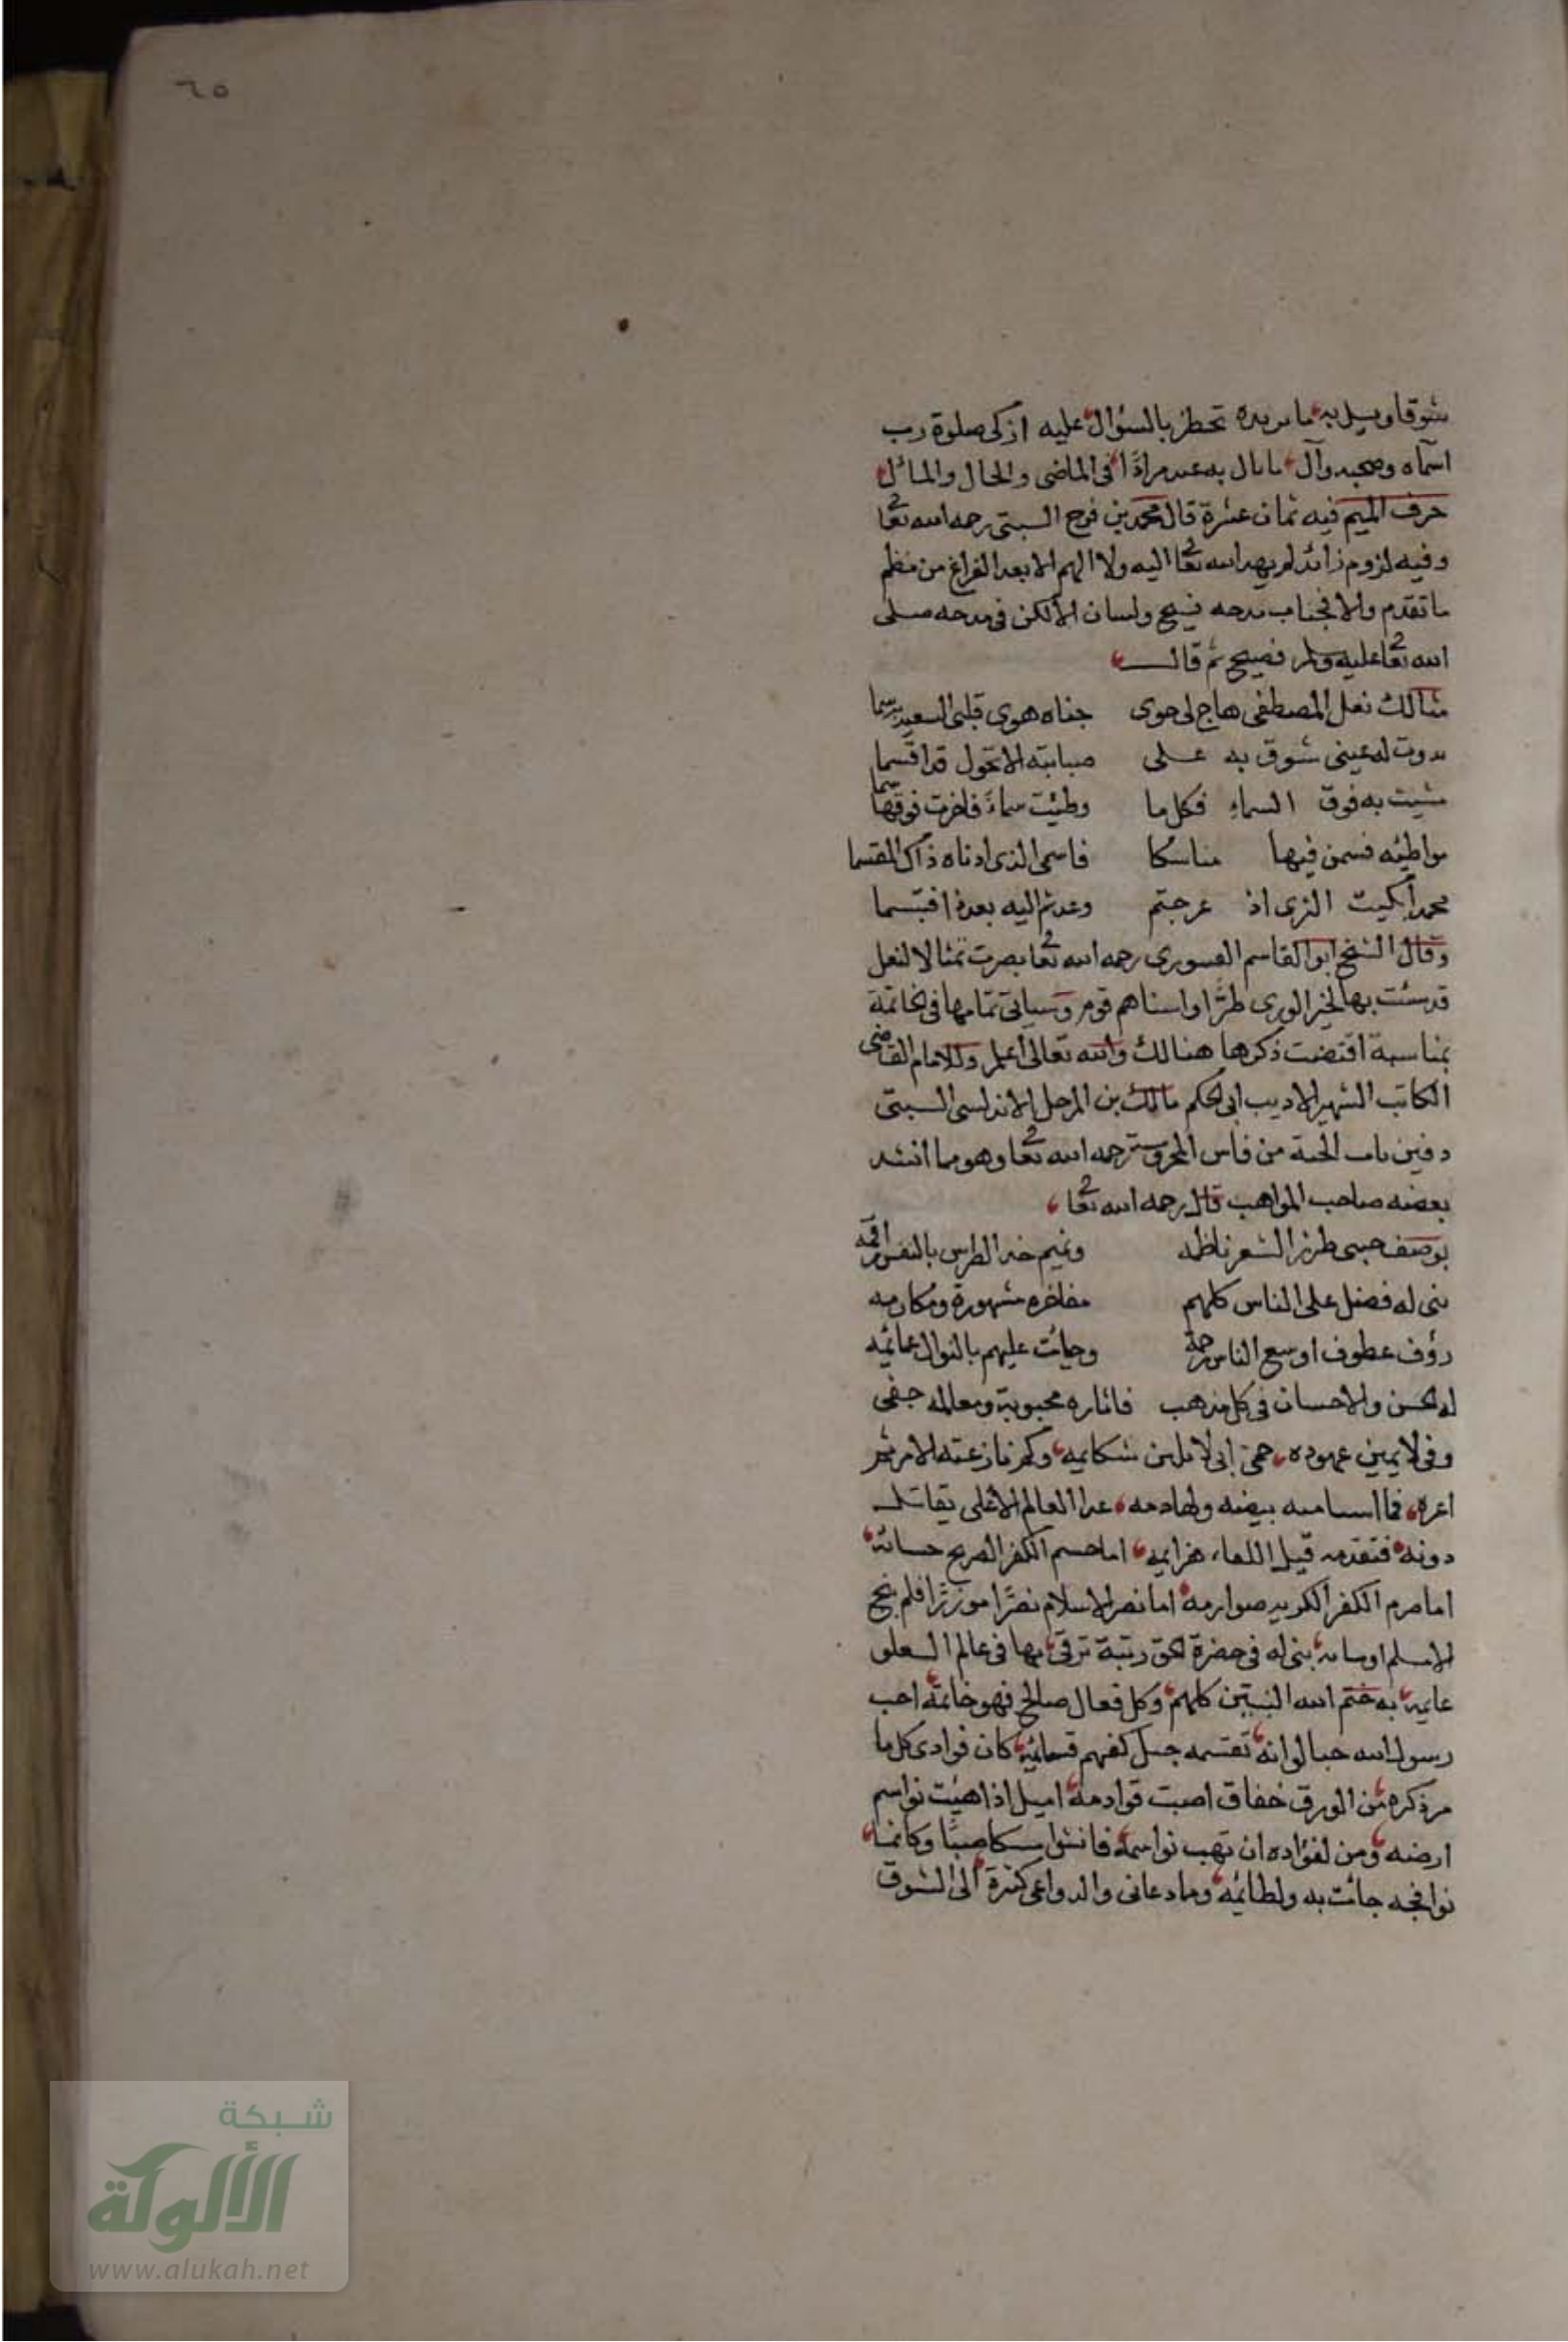 ٦٥
شوقا وسل به ما تريده تحظ بالسؤال عليه ازكى صلوة رب
اسماه وصحبه وآل ما نال به عبد مرادا في الماضى والحال والمآل
حرف الميم فيه ثمان عشرة قال محمد بن فرج السبتى رحمه الله تعا
وفيه لزوم زائد لم يهد الله تعا اليه ولا الهم الا بعد الفراغ من نظم
ما تقدم والا فجناب مدحه فسيح ولسان الالكن في مدحه صلى
الله تعا عليه وسلم فصيح ثم قال
مثالك نعل المصطفى هاج لى جوى جناه هوى قلبى السعيد
بدوت له عينى شوق به على صبابته الا تحول قد اقسما
مشيت به فوق السماء فكل ما وطئت سماءً فاخرت فوقها سما
مواطئه فسمن فيها مناسكا فاسمى الذى ادناه ذاك المقسما
محمد ابكيت الثرى اذ عرجتم وعدتم اليه بعد ذا فتبسما
وقال الشيخ ابو القاسم رحمه الله تعا بصرت تمثالا لنعل
قد سئت بها لخير الورى طرًا واسناهم قوم وسياتى تمامها في الخاتمة
بمناسبة اقتضت ذكرها هنالك والله تعالى اعلم وللامام القاضى
الكاتب الشهير الاديب ابى الحكم مالك بن المرحل الاندلسى السبتى
دفين باب من فاس المحروسة رحمه الله تعا وهو مما انشد
بعضه صاحب المواهب قال رحمه الله تعا
بوصف حبيبى طرز الشعر ناظمه ونمنم خد الطرس بالنقس راقمه
نبى له فضل على الناس كلهم مفاخره مشهورة ومكارمه
رؤف عطوف اوسع الناس رحمة وجائت عليهم بالنوال غمائمه
له الحسن والاحسان في كل مذهب فاثاره محبوبة ومعالمه حفى
وفى لا يمين عهوده حمى ابى لا تلين شكايمه وكم نازعته الامر
اعره فما اسلمه بيضه ولهادمه غدا العالم الاعلى يقاتل
دونه فتقدمه قبل اللقاء هزايمه اما حسم الكفر الصريح حسامه
اما صرم الكفر صوارمه اما نصر الاسلام نصرًا موزرًا فلم ينج
الا مسلم او مسالمه نبى له في حضرة الحق رتبة ترقى بها في عالم العلو
عالمه به ختم الله النبيين كلهم وكل فعال صالح فهو خاتمه احب
رسول الله حبا لو انه تقسمه كفتهم قسائمه كان فوادى كل ما
مر ذكره من الورق خفاق اصيبت قوادمه اميل اذا هبت نواسم
ارضه ومن لفؤاده ان تهب نواسمه فانشق مسكا طيبًا وكانما
نوافجه جائت به ولطائمه وما دعانى والدواعى كثرة الى الشوق
شبكة
الألوكة
www.alukah.net